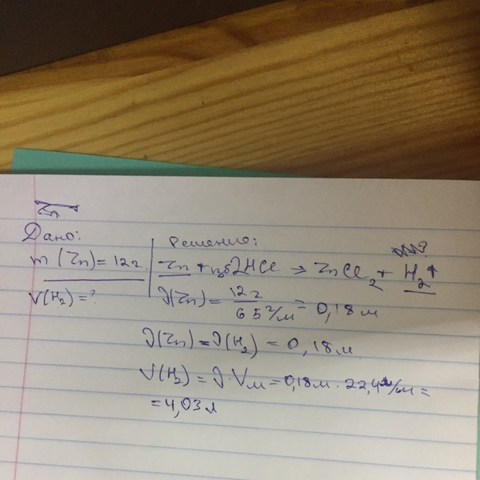 Zn
Дано:
m (Zn) = 12 г
V(H₂) = ?
Решение:
Zn + изб 2HCl → ZnCl₂ + H₂↑
ν(Zn) = 12 г / 65 г/м = 0,18 м
ν(Zn) = ν(H₂) = 0,18 м
V(H₂) = ν · Vм = 0,18 м · 22,4 л/м =
= 4,03 л